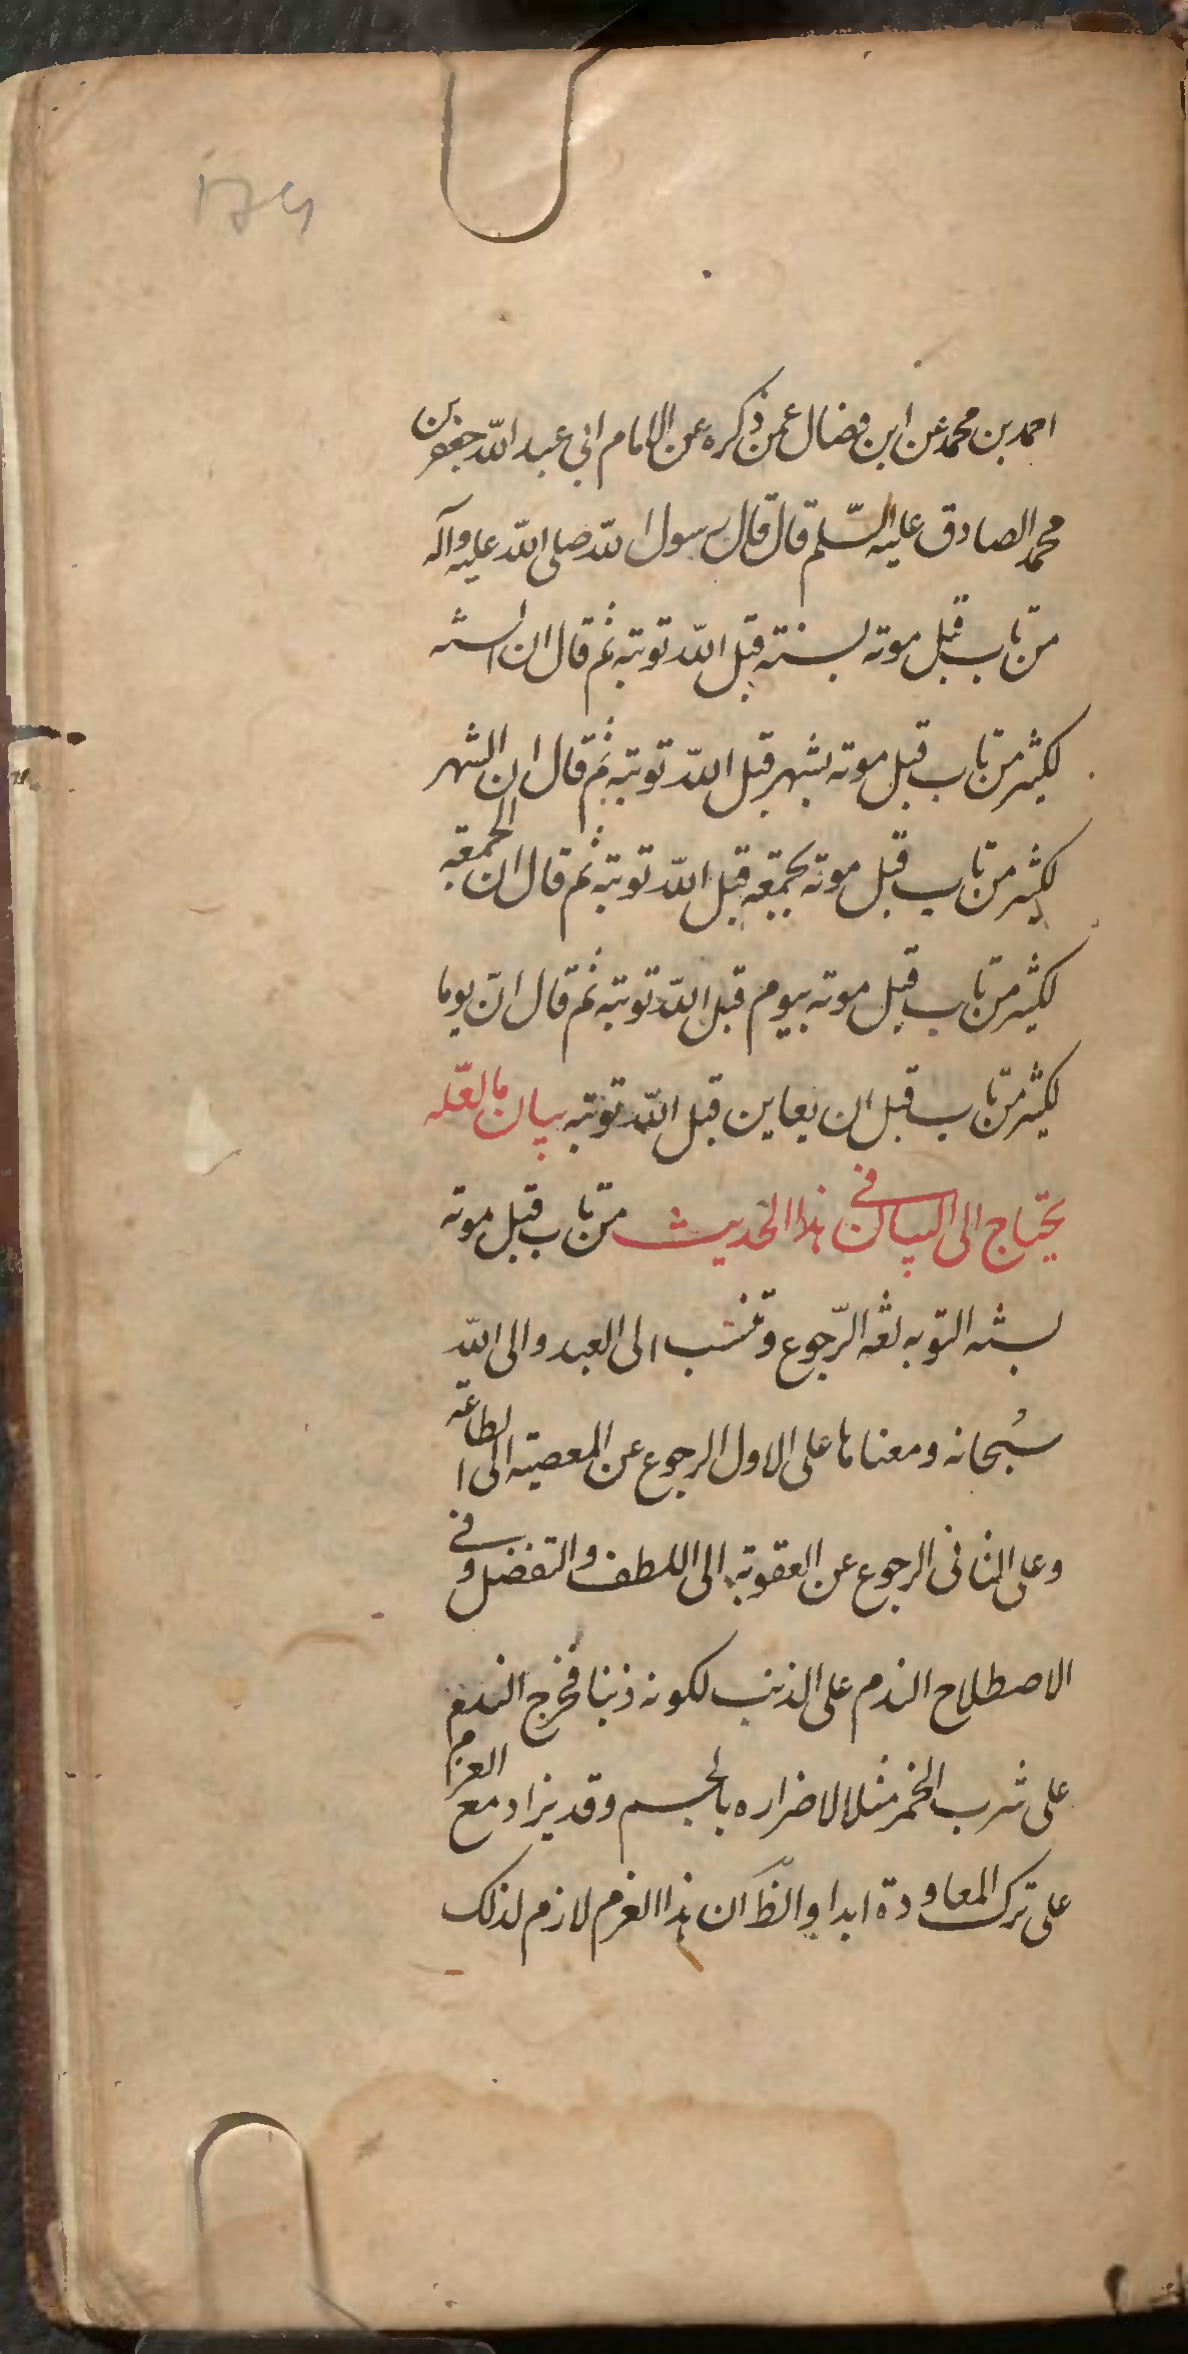 ١٧٩
احمد بن محمد عن ابن فضال عمن ذكره عن الامام ابي عبد الله جعفر بن
محمد الصادق عليه السّلم قال قال رسول الله صلى الله عليه وآله
من تاب قبل موته بسنته قبل الله توبته ثم قال ان السنه
لكثير من تاب قبل موته بشهر قبل الله توبته ثم قال ان الشهر
لكثير من تاب قبل موته بجمعة قبل الله توبته ثم قال ان الجمعة
لكثير من تاب قبل موته بيوم قبل الله توبته ثم قال انّ يوما
لكثير من تاب قبل ان يعاين قبل الله توبته بيان ما لعلّه
يحتاج الى البيان في هذا الحديث من تاب قبل موته
بسنه التوبه لغه الرّجوع وتنسب الى العبد والى الله
سُبحانه ومعناها على الاول الرجوع عن المعصية الى الطاعة
وعلى الثاني الرجوع عن العقوبة الى اللطف والتفضل وفي
الاصطلاح الندم على الذنب لكونه ذنبا فخرج الندم
على شرب الخمر مثلا لاضراره بالجسم وقد يزاد مع العزم
على ترك المعاودة ابدا والظّ ان هذا العزم لازم لذلك